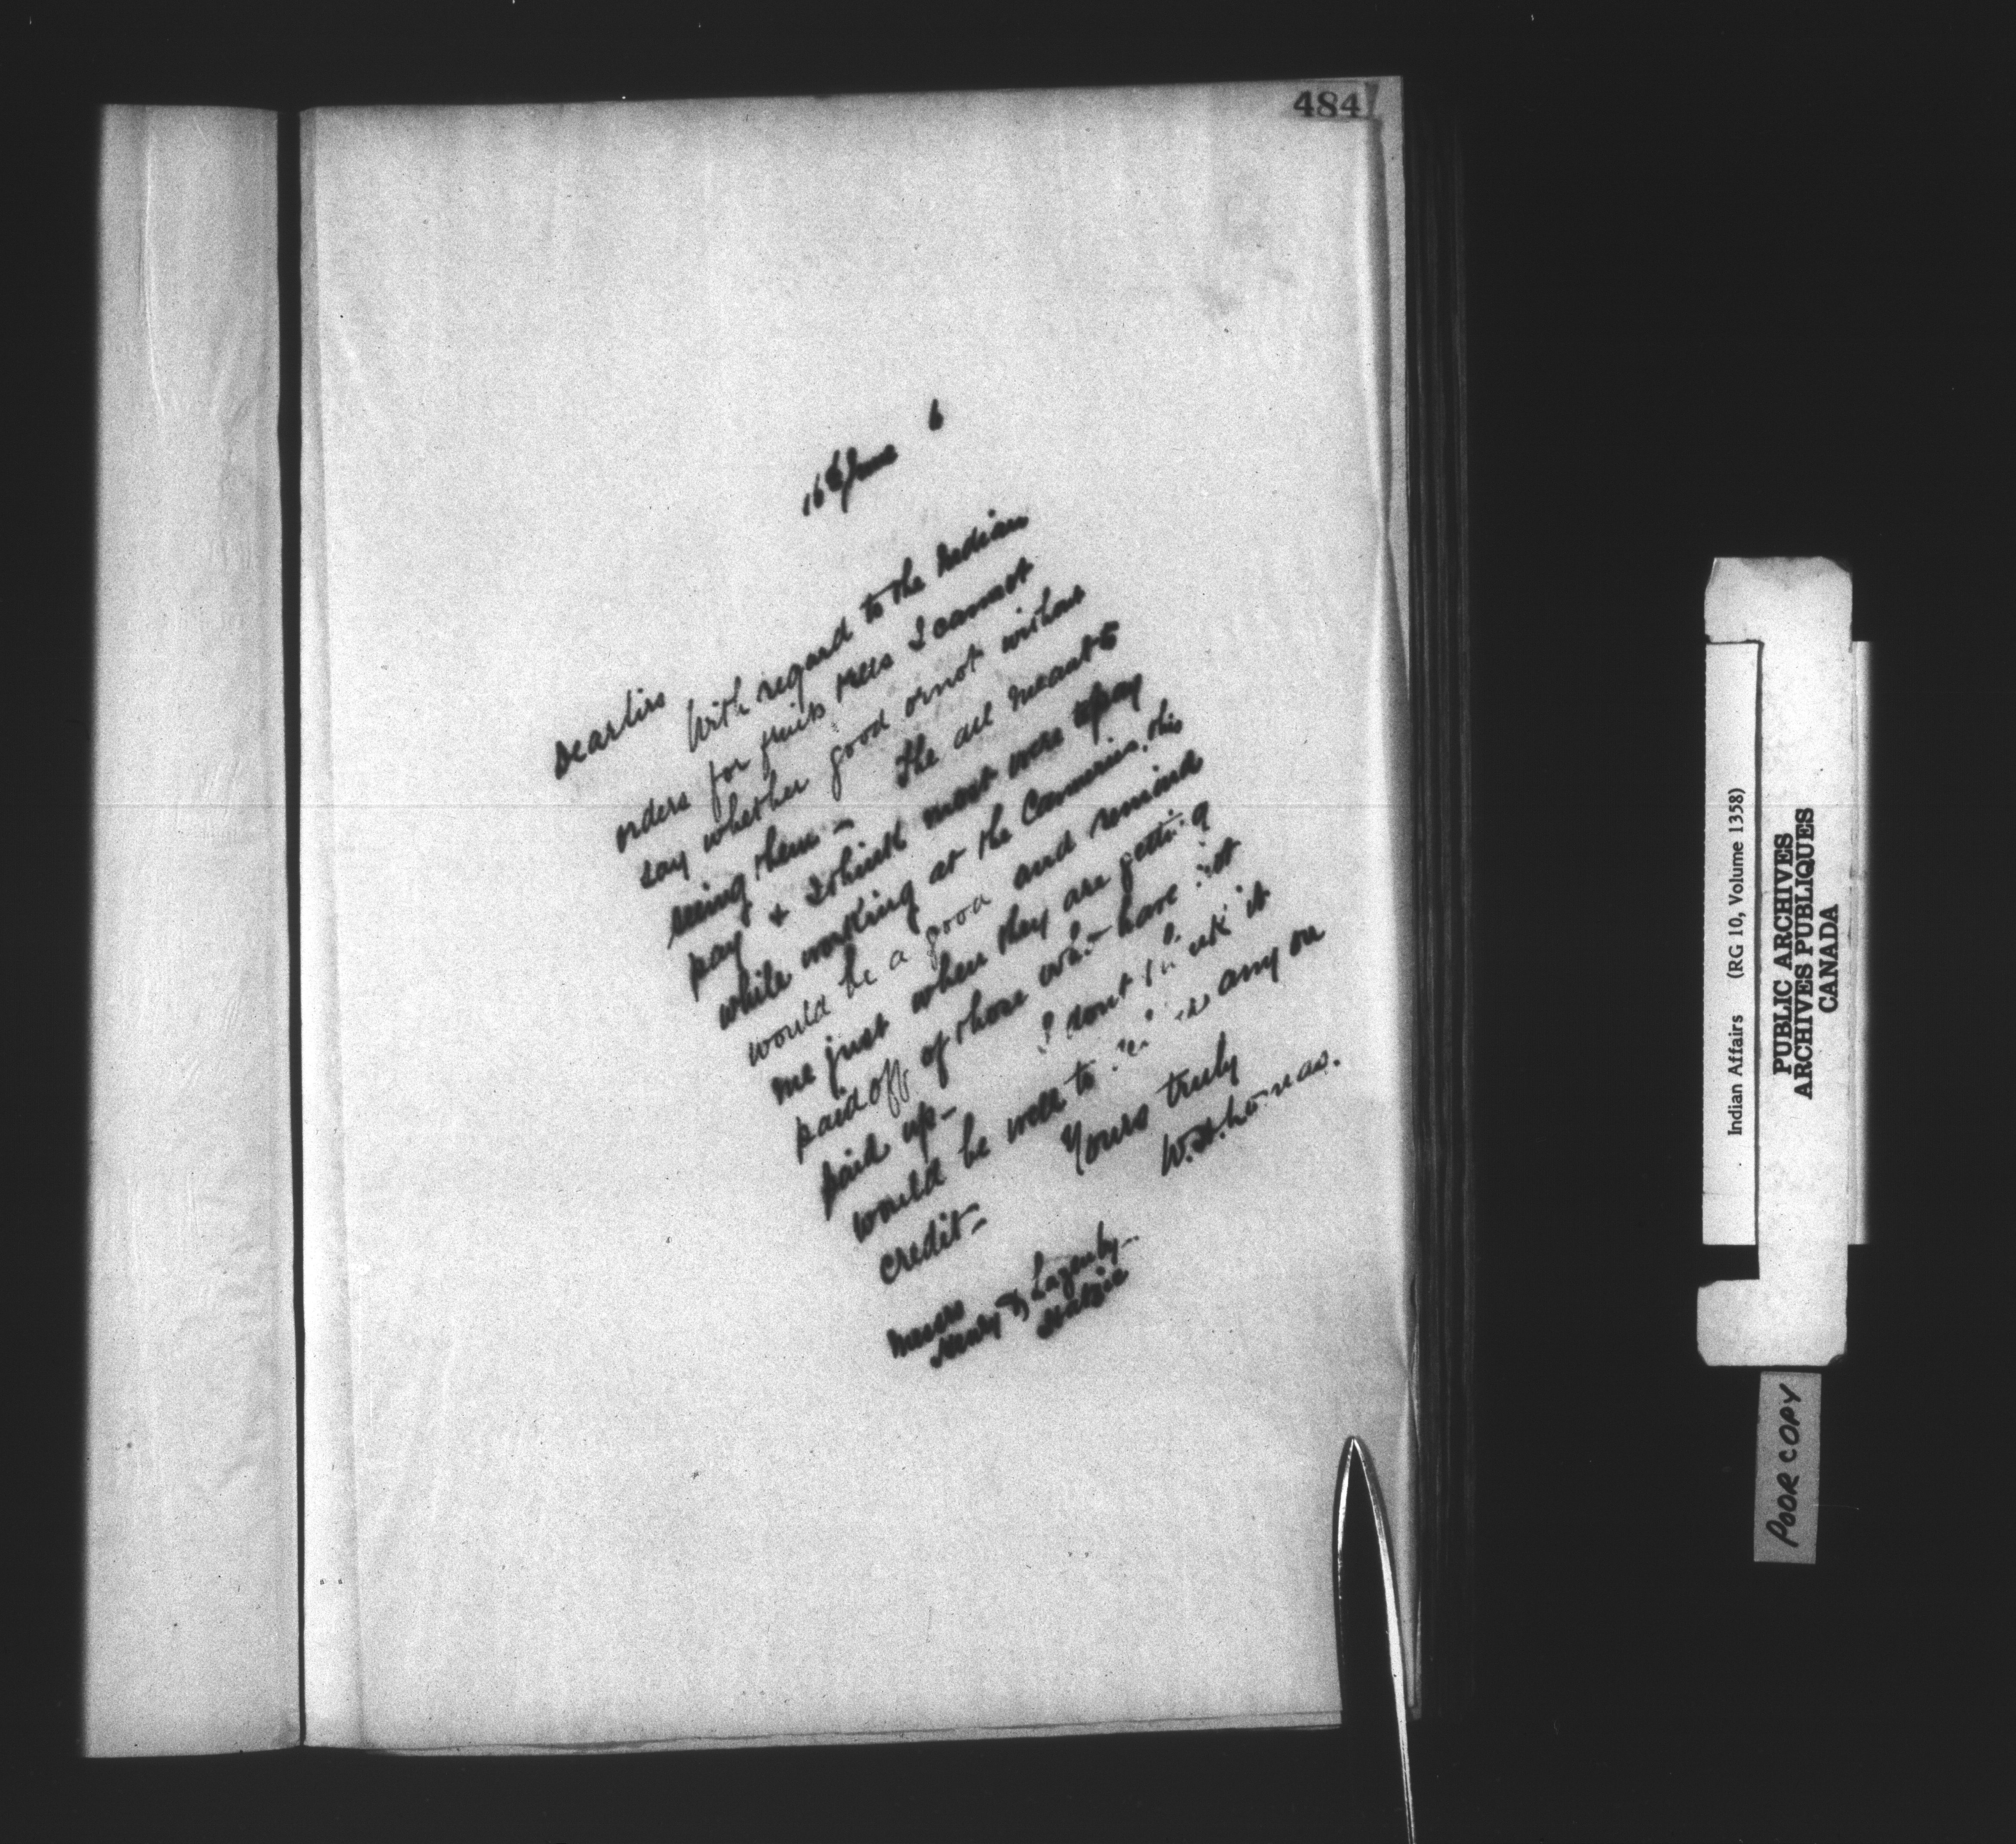 484
16th June 6
Dear Sirs
With regard to the Indian
orders for fruit trees I cannot
say whether good or not without
seeing them - The all meant to
pay & I think most were to pay
while working at the Canneries, this
would be a good and remind
me just when they are getting
paid off of those who have not
paid up - I dont think it
would be well to any on
credit -
Yours truly
W.H. Lomas.
Messrs
Henry & Lazenby -
Indian Affairs (RG 10, Volume 1358)
PUBLIC ARCHIVES
ARCHIVES PUBLIQUES
CANADA
POOR COPY